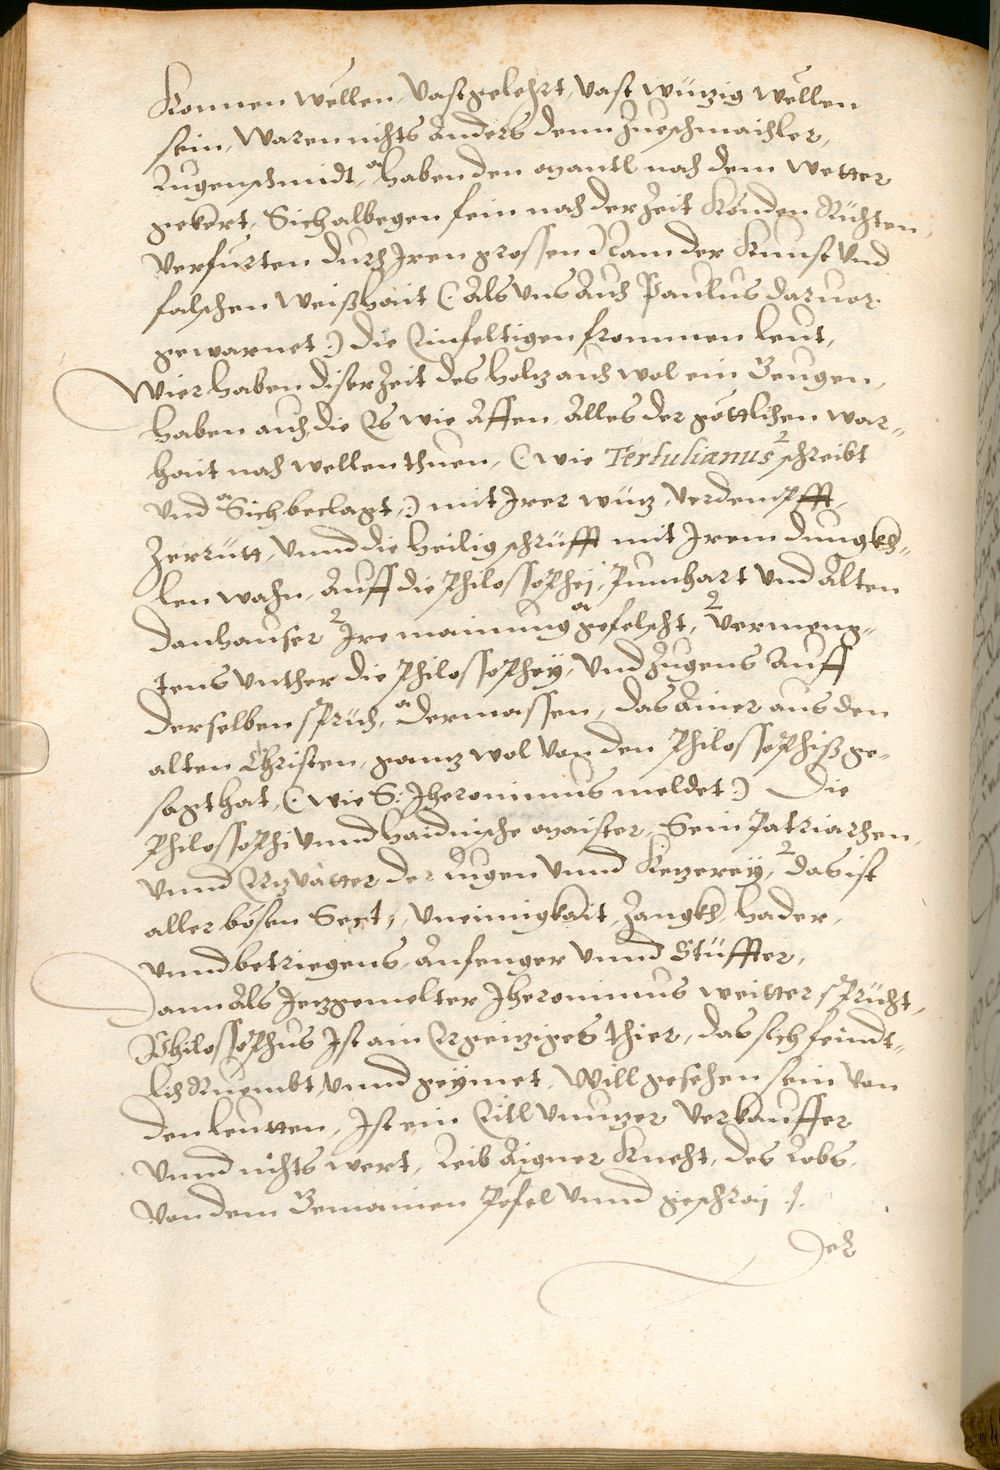 Konnen wellen, vast gelehrt, vast würzig wellen
sein, Waren nichts Anders denn Zueschmaichler,
Lugenschmidt, haben den Mantl nach dem Wetter
gekert, Sich albegen fein nach der Zeit Könden Richten,
Verfürten durch Iren grossen Nam der Kunst vnd
falschen Weißhait (: Als vns Auch Paulus daruor
gewarnet :) die Einfeltigen frommen leut,
Wier haben diser Zeit des holz auch wol ein Beugen,
haben auch die Es wie Affen, Alles der göttlichen war-
hait nach wellen thuen, (: wie Tertulianus schreibt
vnd Sich beclagt, :) mit Irer würz, verdempfft,
Zerrütt, Vnnd die heilig schrüfft mit Irem dungkh-
len wahn, Auff die Philossophej, Punhart vnd Alten
danhauser Ire mainung gefelscht, vermeng-
tens vnther die Philossophey, vnd Zugens Auff
derselben sprüch, dermassen, das Ainer aus den
alten Christen, ganz wol von den Philossophis ge-
sagt hat, (: wie S: Jheronimus meldet :) Die
Philossophi vnnd haidnische Maister, Sein Patriarchen,
vnnd Erzvätter der Lugen vnnd Kezerey, das ist
aller bösen Sect, Vneinigkait, Zangkh, hader,
vnnd betriegens, Anfenger vnnd Stüffter,
Dann Als Jezgemelter Jheronimus weitter sprücht,
Philossophus Ist ain Ergeiziges thier, das sich feindt-
lich Ruembt, vnnd geymet, Will gesehen sein von
den leutten, Ist ein Eitl vnnuzer verkauffer
vnnd nichts wert, Leib Aigner Knecht, des Lobs,
von dem Gemainen Pöfel vnnd geschray.
Der